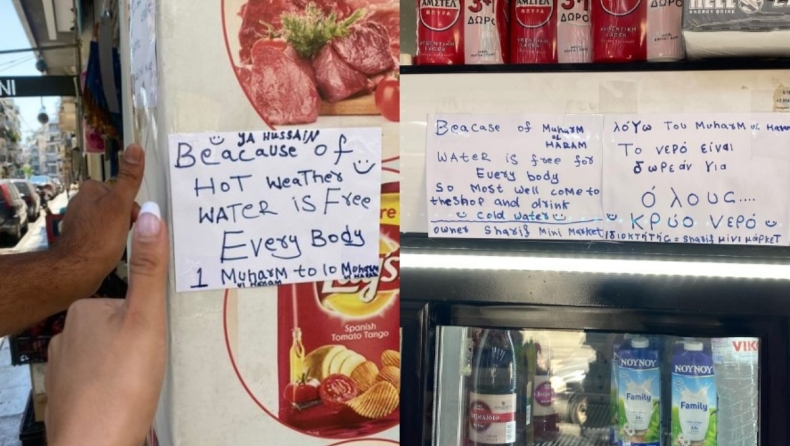 NI
YA HUSSAIN
Beacause of
HoT Weather
WATER is Free
Every Body
1 MuharM to 10 Muharm
ul HARAM
ul HARAM
Lay's
Spanish
Tomato Tango
ΑΜΣΤΕΛ
3+1
ΔΩΡΟ
ΑΜΣΤΕΛ
3+1
ΔΩΡΟ
ΔΩΡΟ
HELL
ENERGY DRINK
Beacase of MuharM
ul
HARAM
WATER is free for
Every body
So Most well come to
the shop and drink
cold water
owner Sharif Mini Market
λόγω Του MuharM ul Haram
Το νερό είναι
δωρεάν για
όλους....
ΚΡύο νερό
ιδιοκτήτης = sharif μίνι μάρκετ
ΝΟΥΝΟΥ
Family
ΝΟΥΝΟΥ
Family
VIK